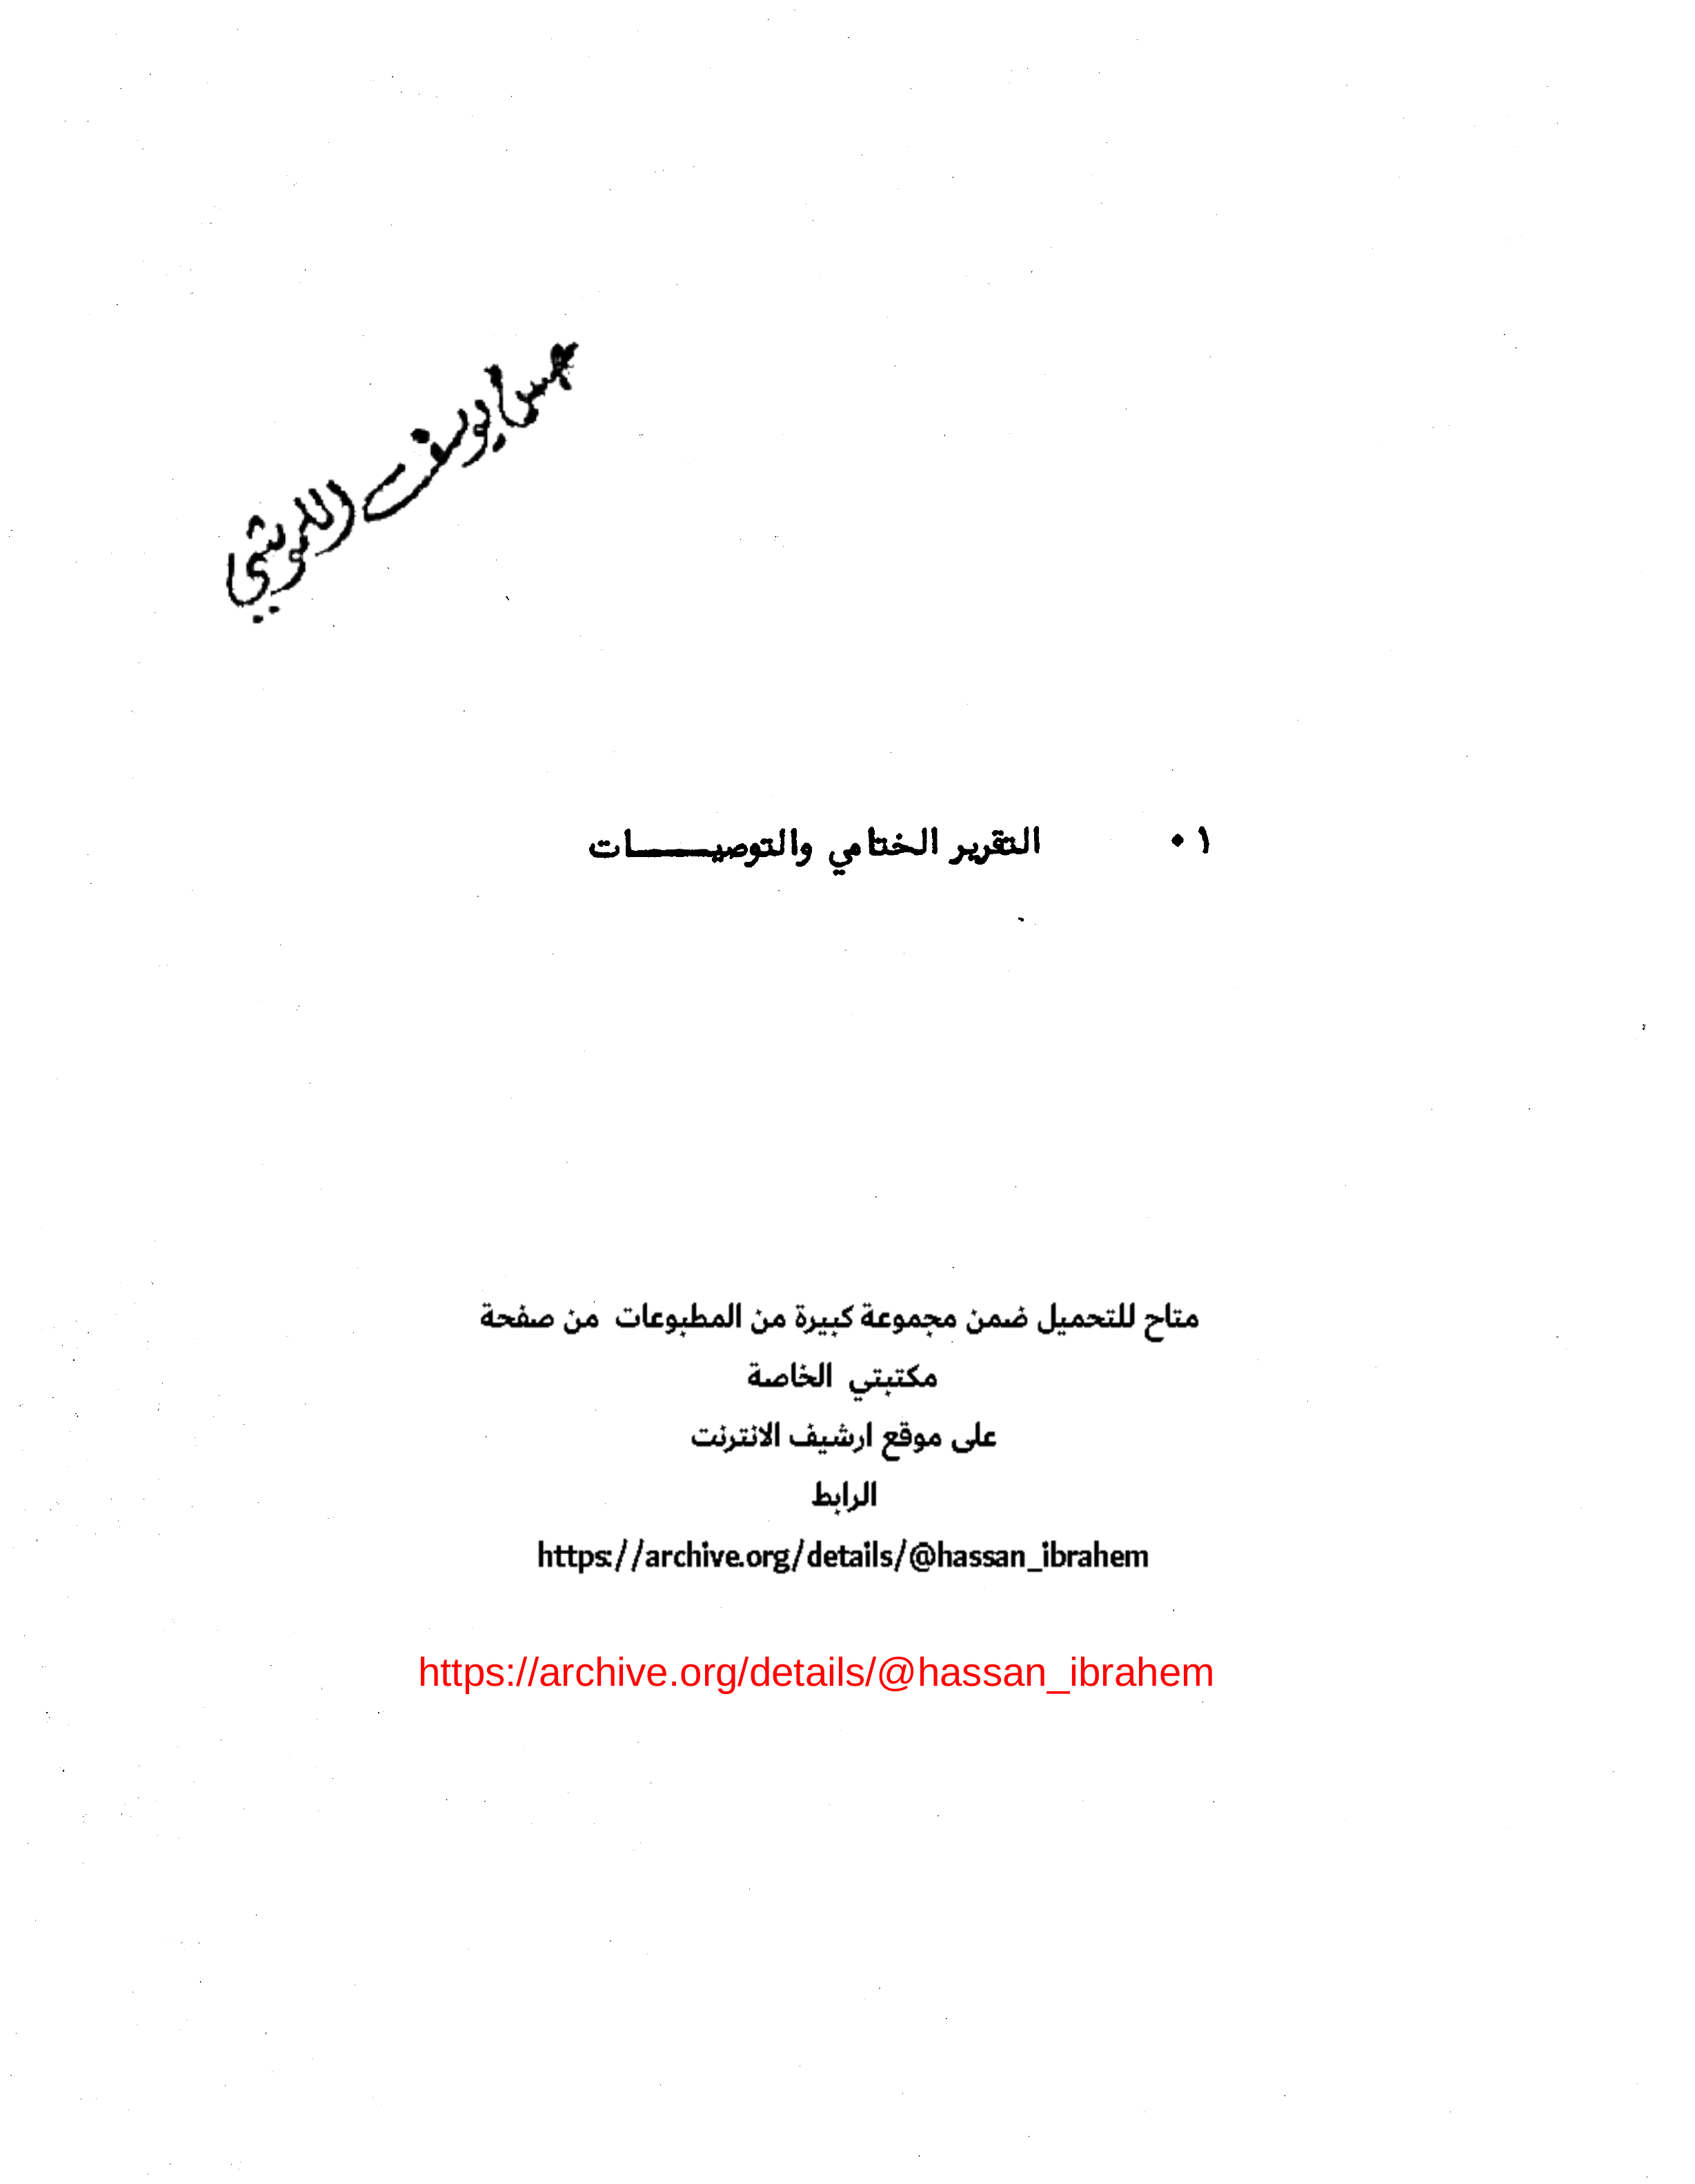 يوسف
١٠ التقرير الختامي والتوصيـــــات
متاح للتحميل ضمن مجموعة كبيرة من المطبوعات من صفحة
مكتبتي الخاصة
على موقع ارشيف الانترنت
الرابط
https://archive.org/details/@hassan_ibrahem
https://archive.org/details/@hassan_ibrahem